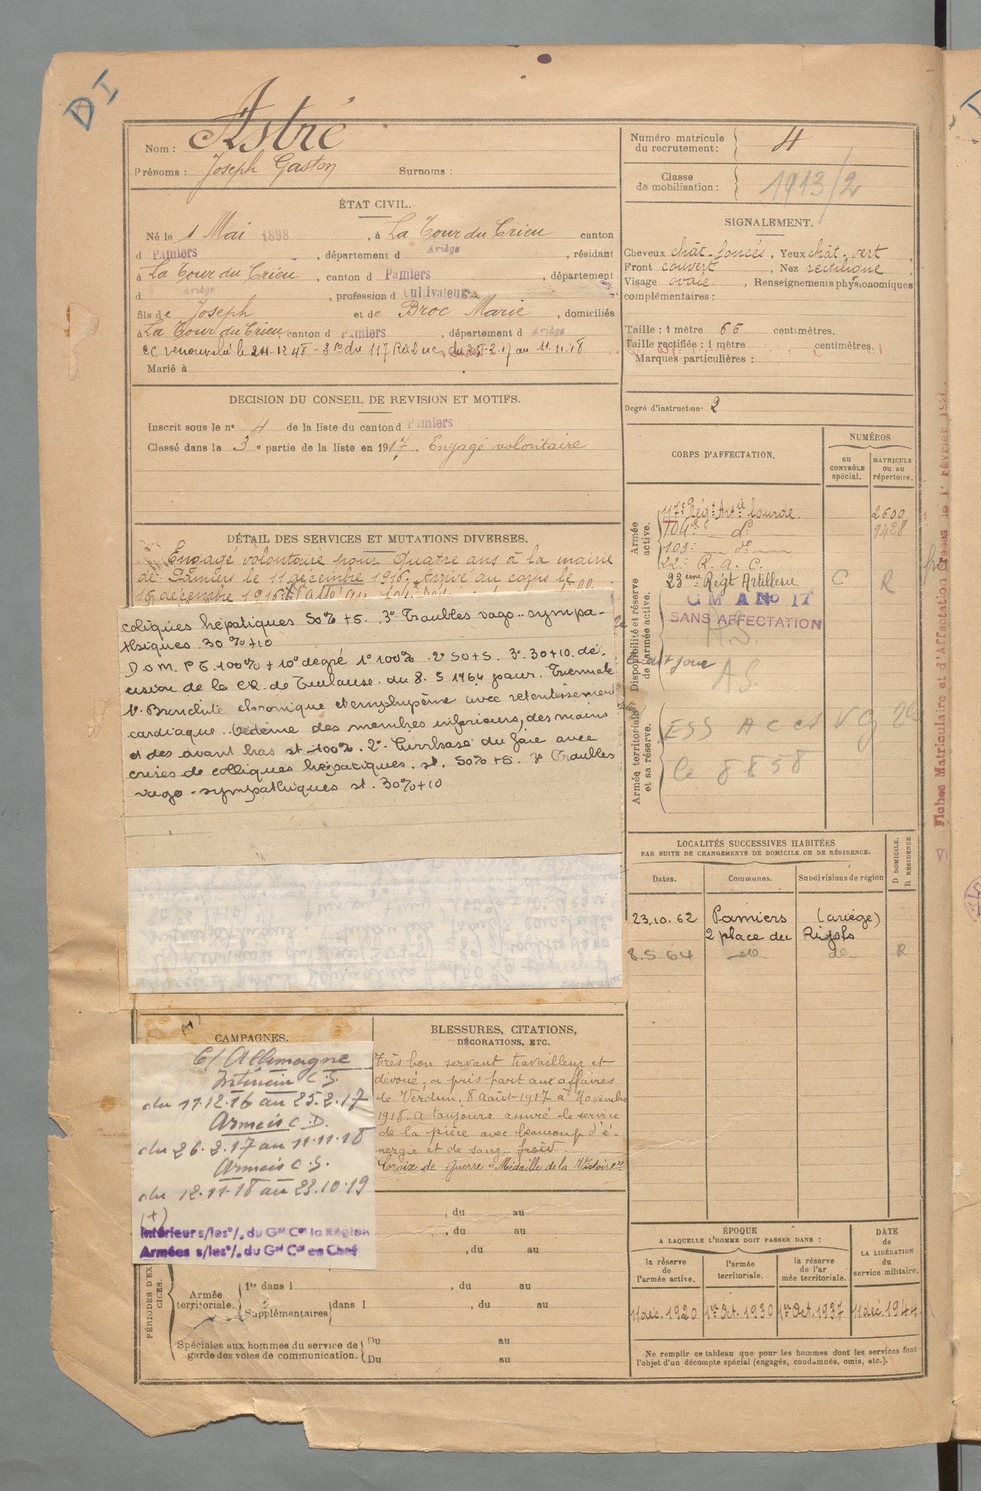 DI
Nom : Astré
Prénoms : Joseph Gaston Surnoms :
Numéro matricule
du recrutement : 4
Classe
de mobilisation : 1913/2
ÉTAT CIVIL.
Né le 1 Mai 1898, à La Tour du Crieu canton
d Pamiers, département d Ariège, résidant
à La Tour du Crieu, canton d Pamiers, département
d Ariège, profession d Cultivateur
fils de Joseph et de Broc Marie, domiciliés
à La Tour du Crieu canton d Pamiers, département d Ariège
CC renouvelée le 24-12 48 - du 117 du 25-2-17 au 11.11.18
Marié à
SIGNALEMENT.
Cheveux chât. foncés, Yeux chât. vert,
Front couvert, Nez rectiligne
Visage ovale, Renseignements physionomiques
complémentaires :
Taille : 1 mètre 66 centimètres.
Taille rectifiée : 1 mètre centimètres.
Marques particulières :
Degré d'instruction : 2
DECISION DU CONSEIL DE REVISION ET MOTIFS.
Inscrit sous le n° 4 de la liste du canton d Pamiers
Classé dans la 3e partie de la liste en 1917. Engagé volontaire
DÉTAIL DES SERVICES ET MUTATIONS DIVERSES.
Engagé volontaire pour quatre ans à la mairie
de Pamiers le 11 décembre 1916, Arrivé au corps le
15 décembre 1916
coliques hépatiques 50% +5. 3° Troubles vago-sympa-
thiques 30 % +10
D.O.M. P E 100% + 10° degré 1° 100% 2° 50+5. 3° 30+10. dé-
cision de la CR. de Toulouse. du 8. 5 1964 pour.
1° Bronchite chronique et emphysème avec retentissement
cardiaque. Oedème des membres inférieurs, des mains
et des avant bras st 100%. 2° Cirrhose du foie avec
crises de coliques hépatiques. st. 50% +5. 3° Troubles
vago-sympathiques st. 30%+10
CORPS D'AFFECTATION.
NUMÉROS
au
CONTRÔLE
spécial.
MATRICULE
ou au
répertoire.
Armée
active.
117e Rég. Art. lourde. 2600
104e d° 9428
103e d°
22e R. A. C.
23ème Régt Artillerie C R
Disponibilité et réserve
de l'armée active.
C M A No 17
SANS AFFECTATION
AS
Armée territoriale
et sa réserve.
ESS ACCS VG
le 8858
Fiches Matriculaire et d'Affectation
LOCALITÉS SUCCESSIVES HABITÉES
PAR SUITE DE CHANGEMENTS DE DOMICILE OU DE RÉSIDENCE.
Dates. Communes. Subdivisions de région
D DOMICILE.
R RÉSIDENCE
23.10.62 Pamiers (ariège)
2 place du Rigols
8.5-64 de de R
CAMPAGNES.
C/ Allemagne
Intérieur C.S.
du 11.12.16 au 25.2.17
Armées C.D.
du 26.2.17 au 11.11.18
Armées C.S.
du 12.11.18 au 23.10.19
(+)
Intérieur s/les°/, du Gal Ct la Région
Armées s/les°/, du Gal Ct en Chef
BLESSURES, CITATIONS,
DÉCORATIONS, ETC.
Très bon servant travailleur et
dévoué, a pris part aux affaires
de Verdun, 8 Août 1917 à Novembre
1918. A toujours assuré le service
de la pièce avec beaucoup d'é-
nergie et de sang-froid
Croix de Guerre "Médaille de la Victoire"
, du au
, du au
, du au
PÉRIODES D'EXERCICES.
Armée
territoriale.
1re dans l , du au
Supplémentaires dans l , du au
Spéciales aux hommes du service de
garde des voies de communication.
Du au
Du au
ÉPOQUE
A LAQUELLE L'HOMME DOIT PASSER DANS :
la réserve
de
l'armée active.
l'armée
territoriale.
la réserve
de l'ar
mée territoriale.
DATE
de
LA LIBÉRATION
du
service militaire.
11 déc. 1920 1er Oct. 1930 1er Oct. 1937 11 déc. 1944
Ne remplir ce tableau que pour les hommes dont les services font
l'objet d'un décompte spécial (engagés, condamnés, omis, etc.).